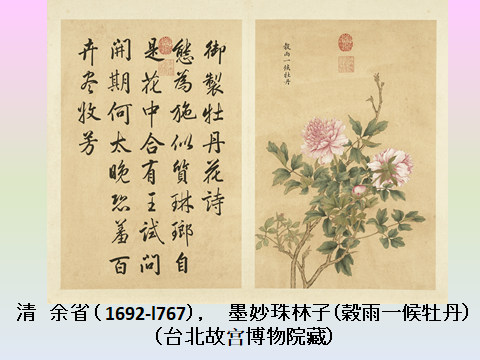 御製牡丹花詩
態為施似質琳瑯自
是花中合有王試問
開期何太晚恐羞百
卉尽收芳
穀雨一候牡丹
清 余省(1692-l767), 墨妙珠林子(穀雨一候牡丹)
(台北故宫博物院藏)